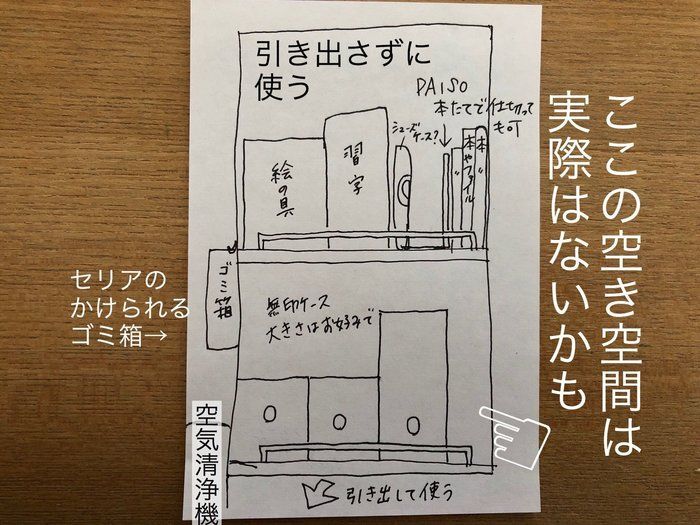 引き出さずに
使う
DAISO
本たてで仕切って
も可
シューズ
ケース?
絵の具
習字
本やファイル
本
セリアの
かけられる
ゴミ箱→
ゴミ箱
無印ケース
大きさはお好みで
空気清浄機
引き出して使う
ここの空き空間は
実際はないかも